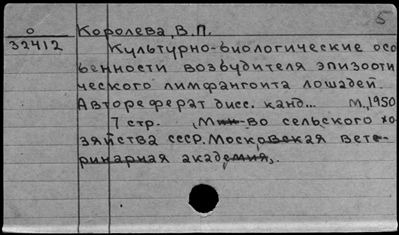 5
О Королева, В.П.
32412 Культурно-биологические осо
бенности возбудителя эпизооти
ческого лимфангоита лошадей.
Автореферат дисс. канд... М., 1950
7 стр. Мин-во сельского хо
зяйства СССР. Московская вете-
ринарная академия.